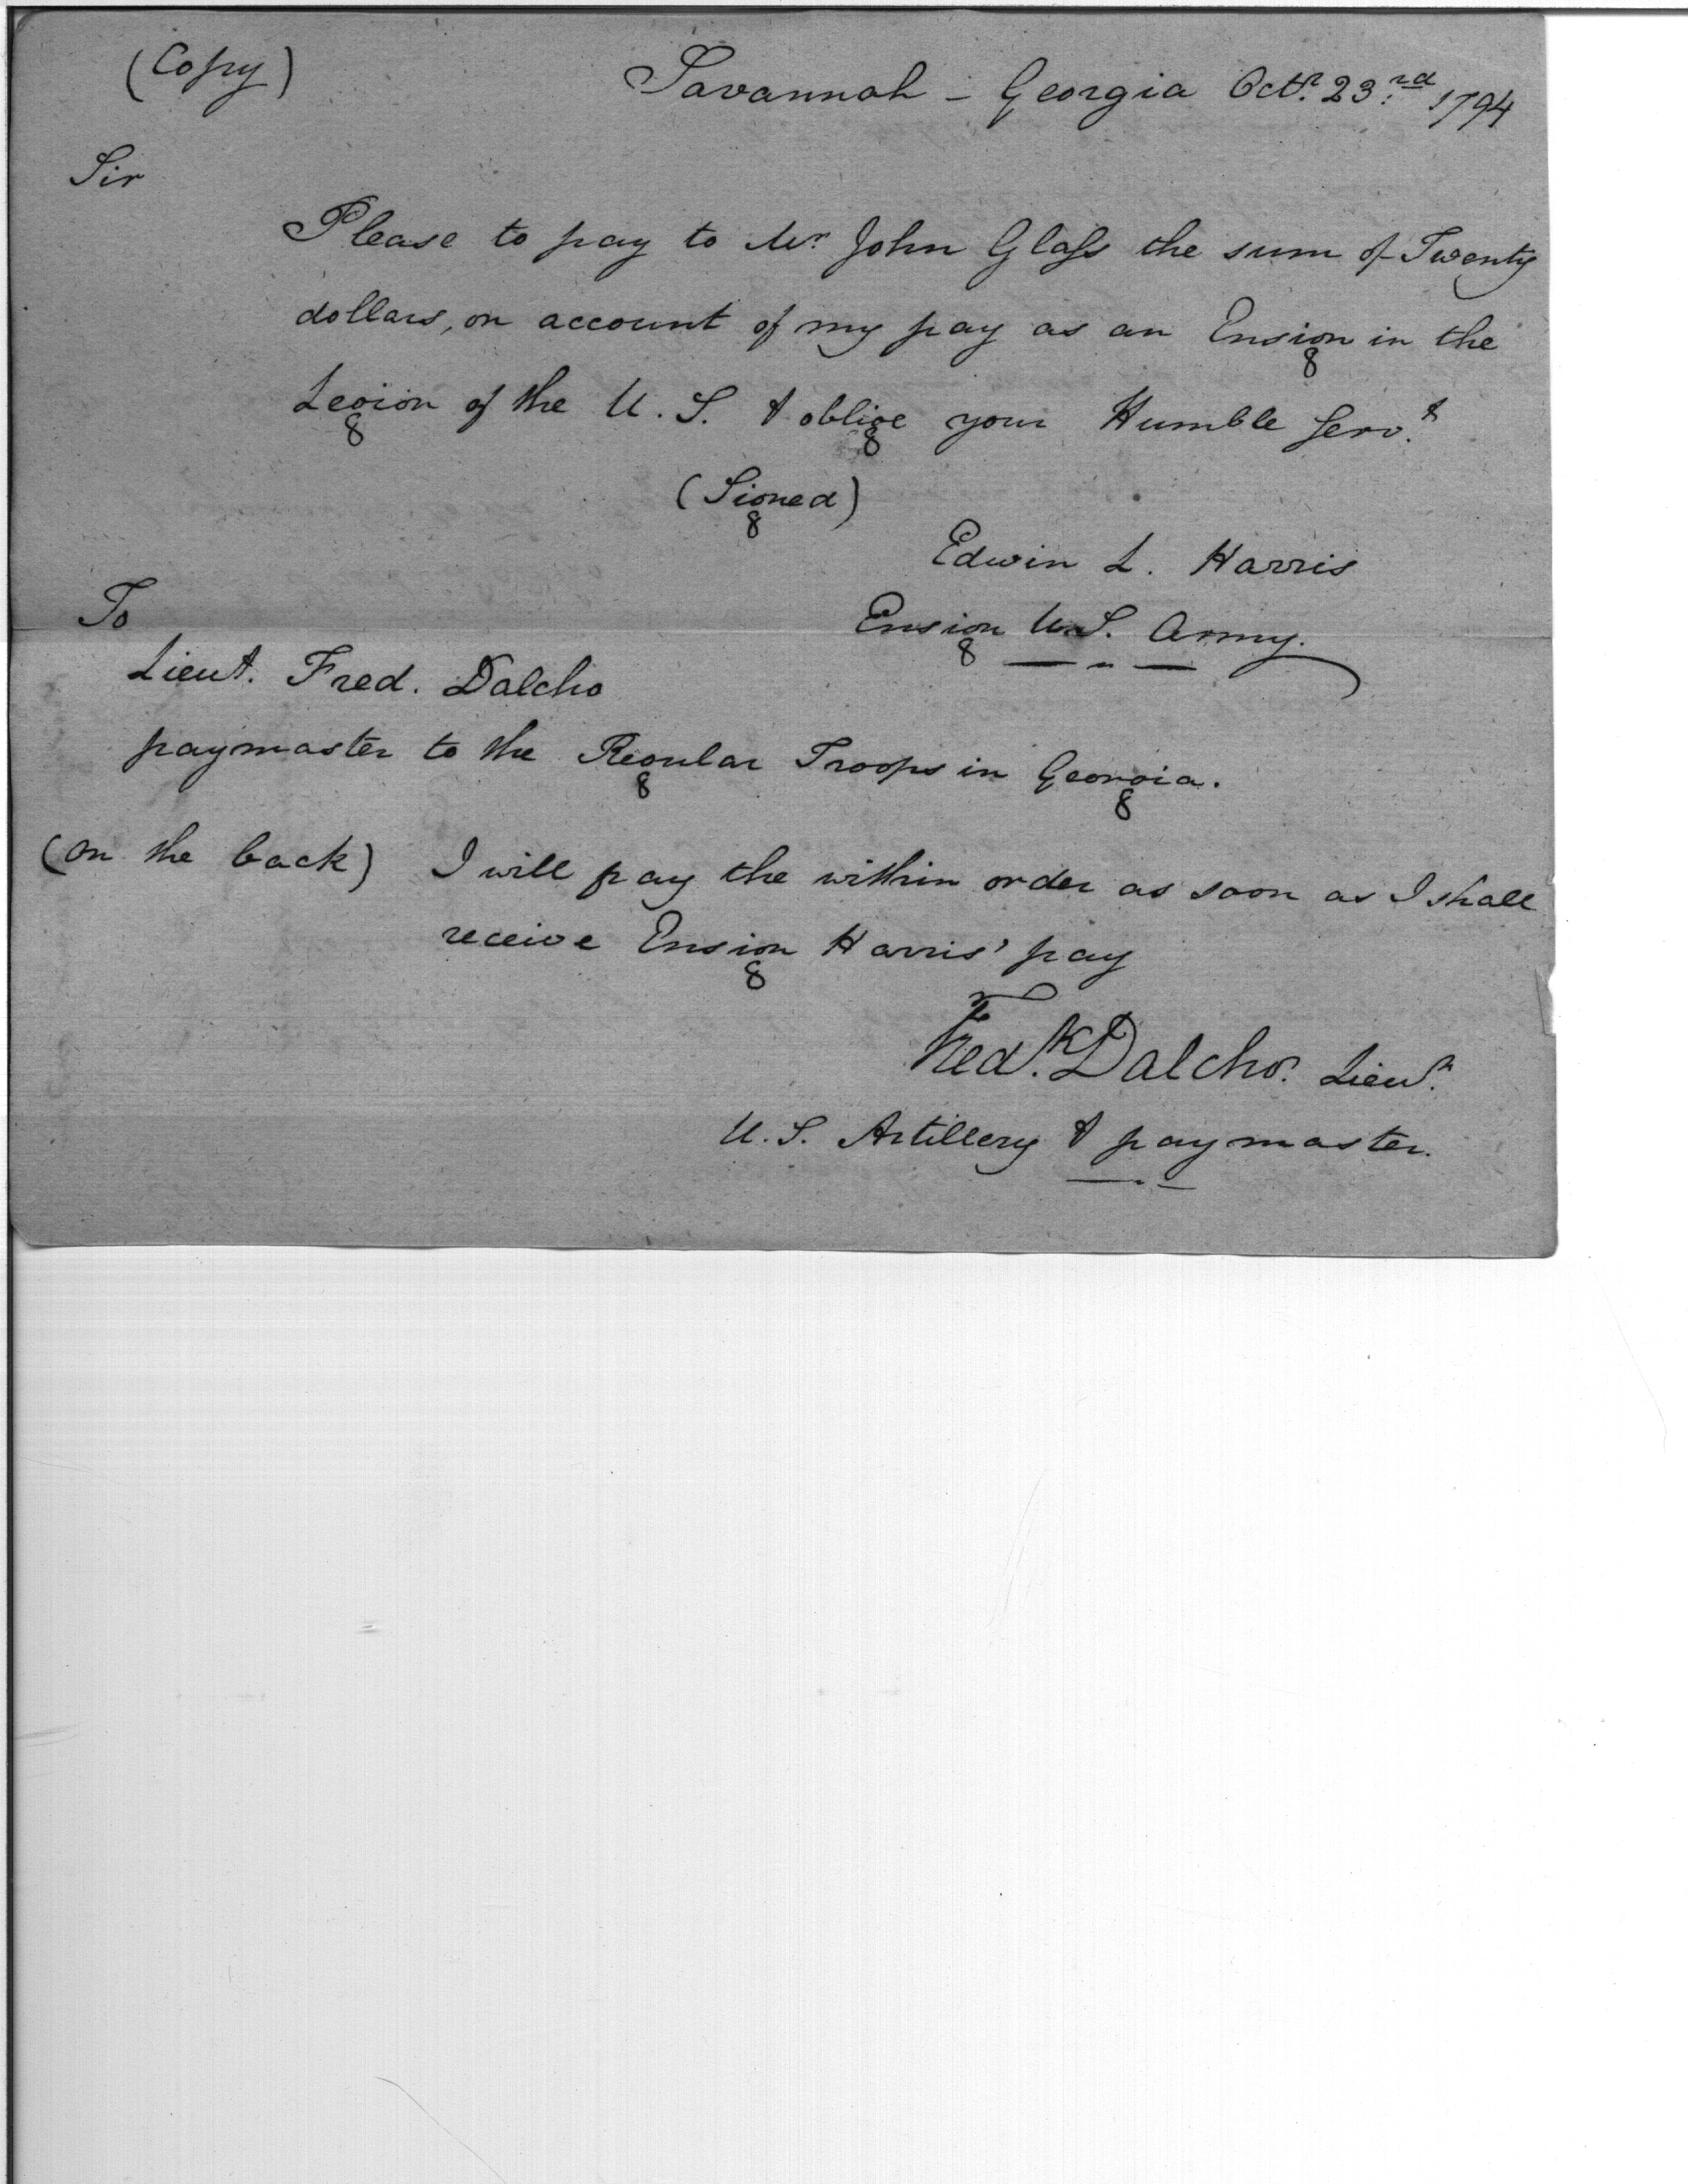 (Copy)
Savannah - Georgia Octr. 23rd. 1794
Sir
Please to pay to Mr John Glaſs the sum of Twenty
dollars, on account of my pay as an Ensign in the
Legion of the U. S. & oblige your Humble Servt.
(Signed)
Edwin L. Harris
Ensign U.S. Army.
To
Lieut. Fred. Dalcho
paymaster to the Regular Troops in Georgia.
(on the back) I will pay the within order as soon as I shall
receive Ensign Harris' pay
Fredk. Dalcho. Lieut.
U.S. Artillery & paymaster.